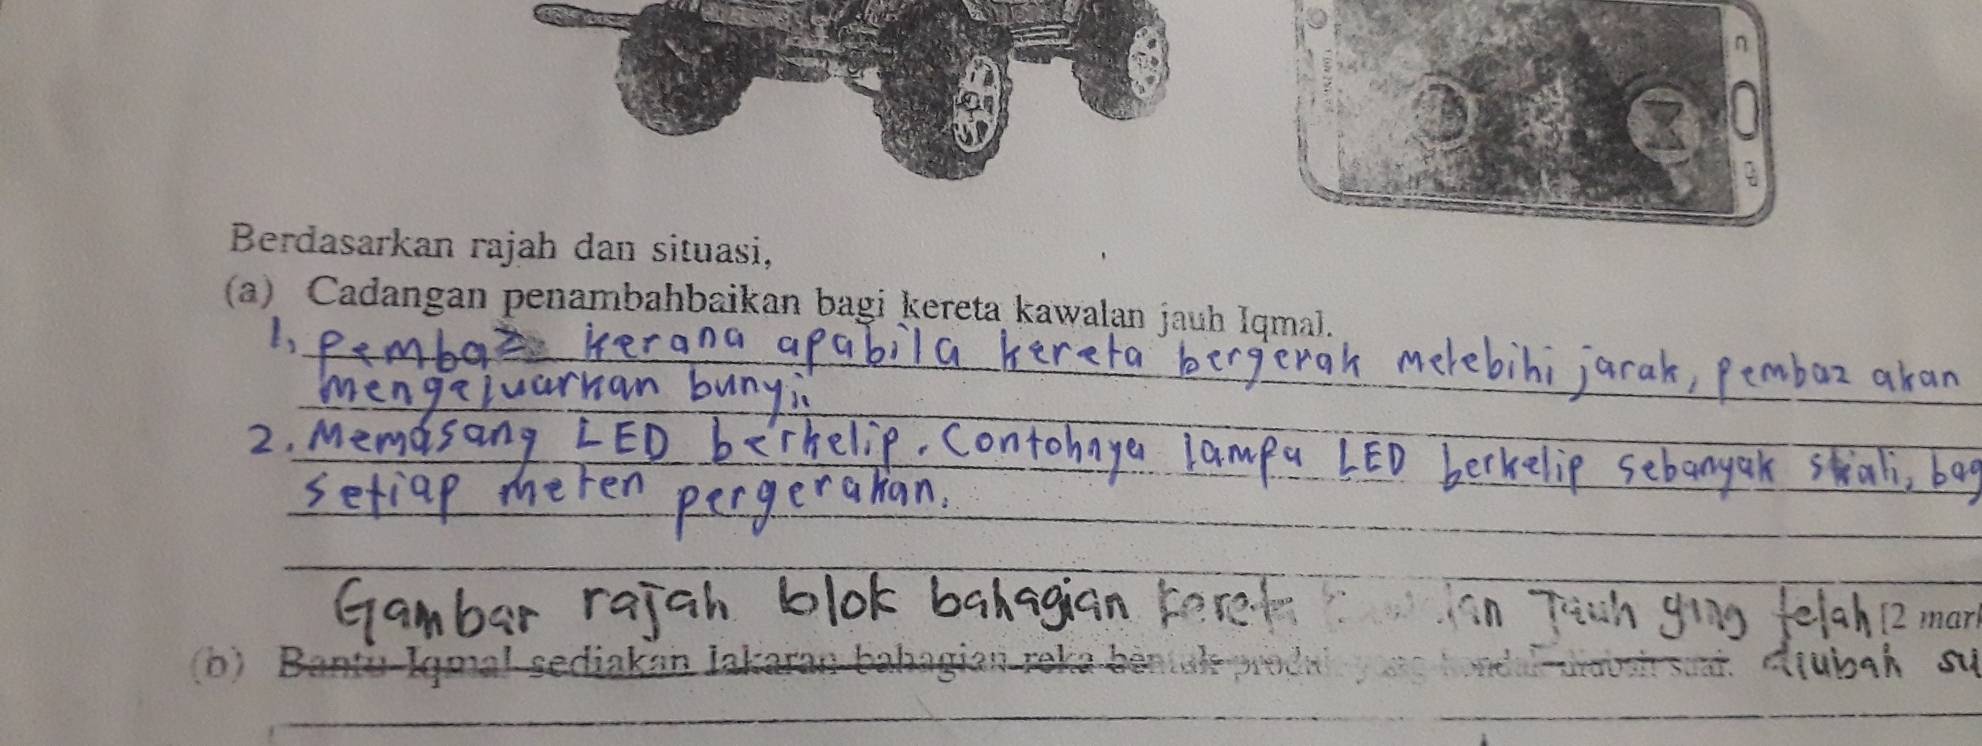 Berdasarkan rajah dan situasi,
(a) Cadangan penambahbaikan bagi kereta kawalan jauh Iqmal.
1. Pembaz kerana apabila kereta bergerak melebihi jarak, pembaz akan
mengeluarkan bunyi.
2. Memasang LED berkelip. Contohnya lampu LED berkelip sebanyak sekali, bag
setiap meter pergerakan.
Gambar rajah blok bahagian keret Jauh yang telah [2 mark
(b) Bantu Iqmal sediakan lakaran bahagian reka bentuk produk yang hendak diubah suai. diubah su